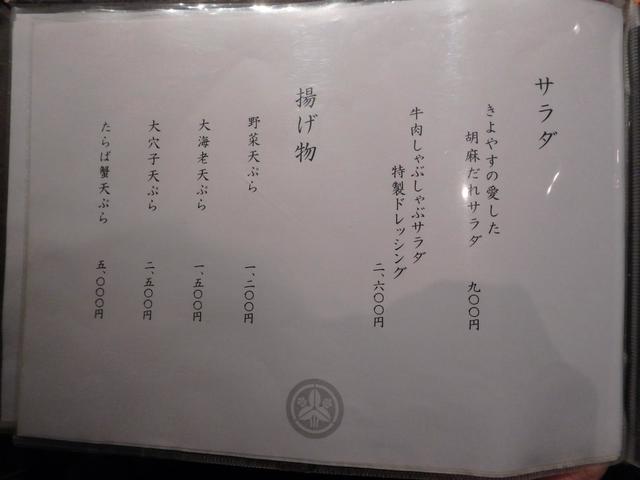 サラダ
きよやすの愛した
胡麻だれサラダ
九〇〇円
牛肉しゃぶしゃぶサラダ
特製ドレッシング
二、六〇〇円
揚げ物
野菜天ぷら
一、二〇〇円
大海老天ぷら
一、五〇〇円
大穴子天ぷら
二、五〇〇円
たらば蟹天ぷら
五、〇〇〇円